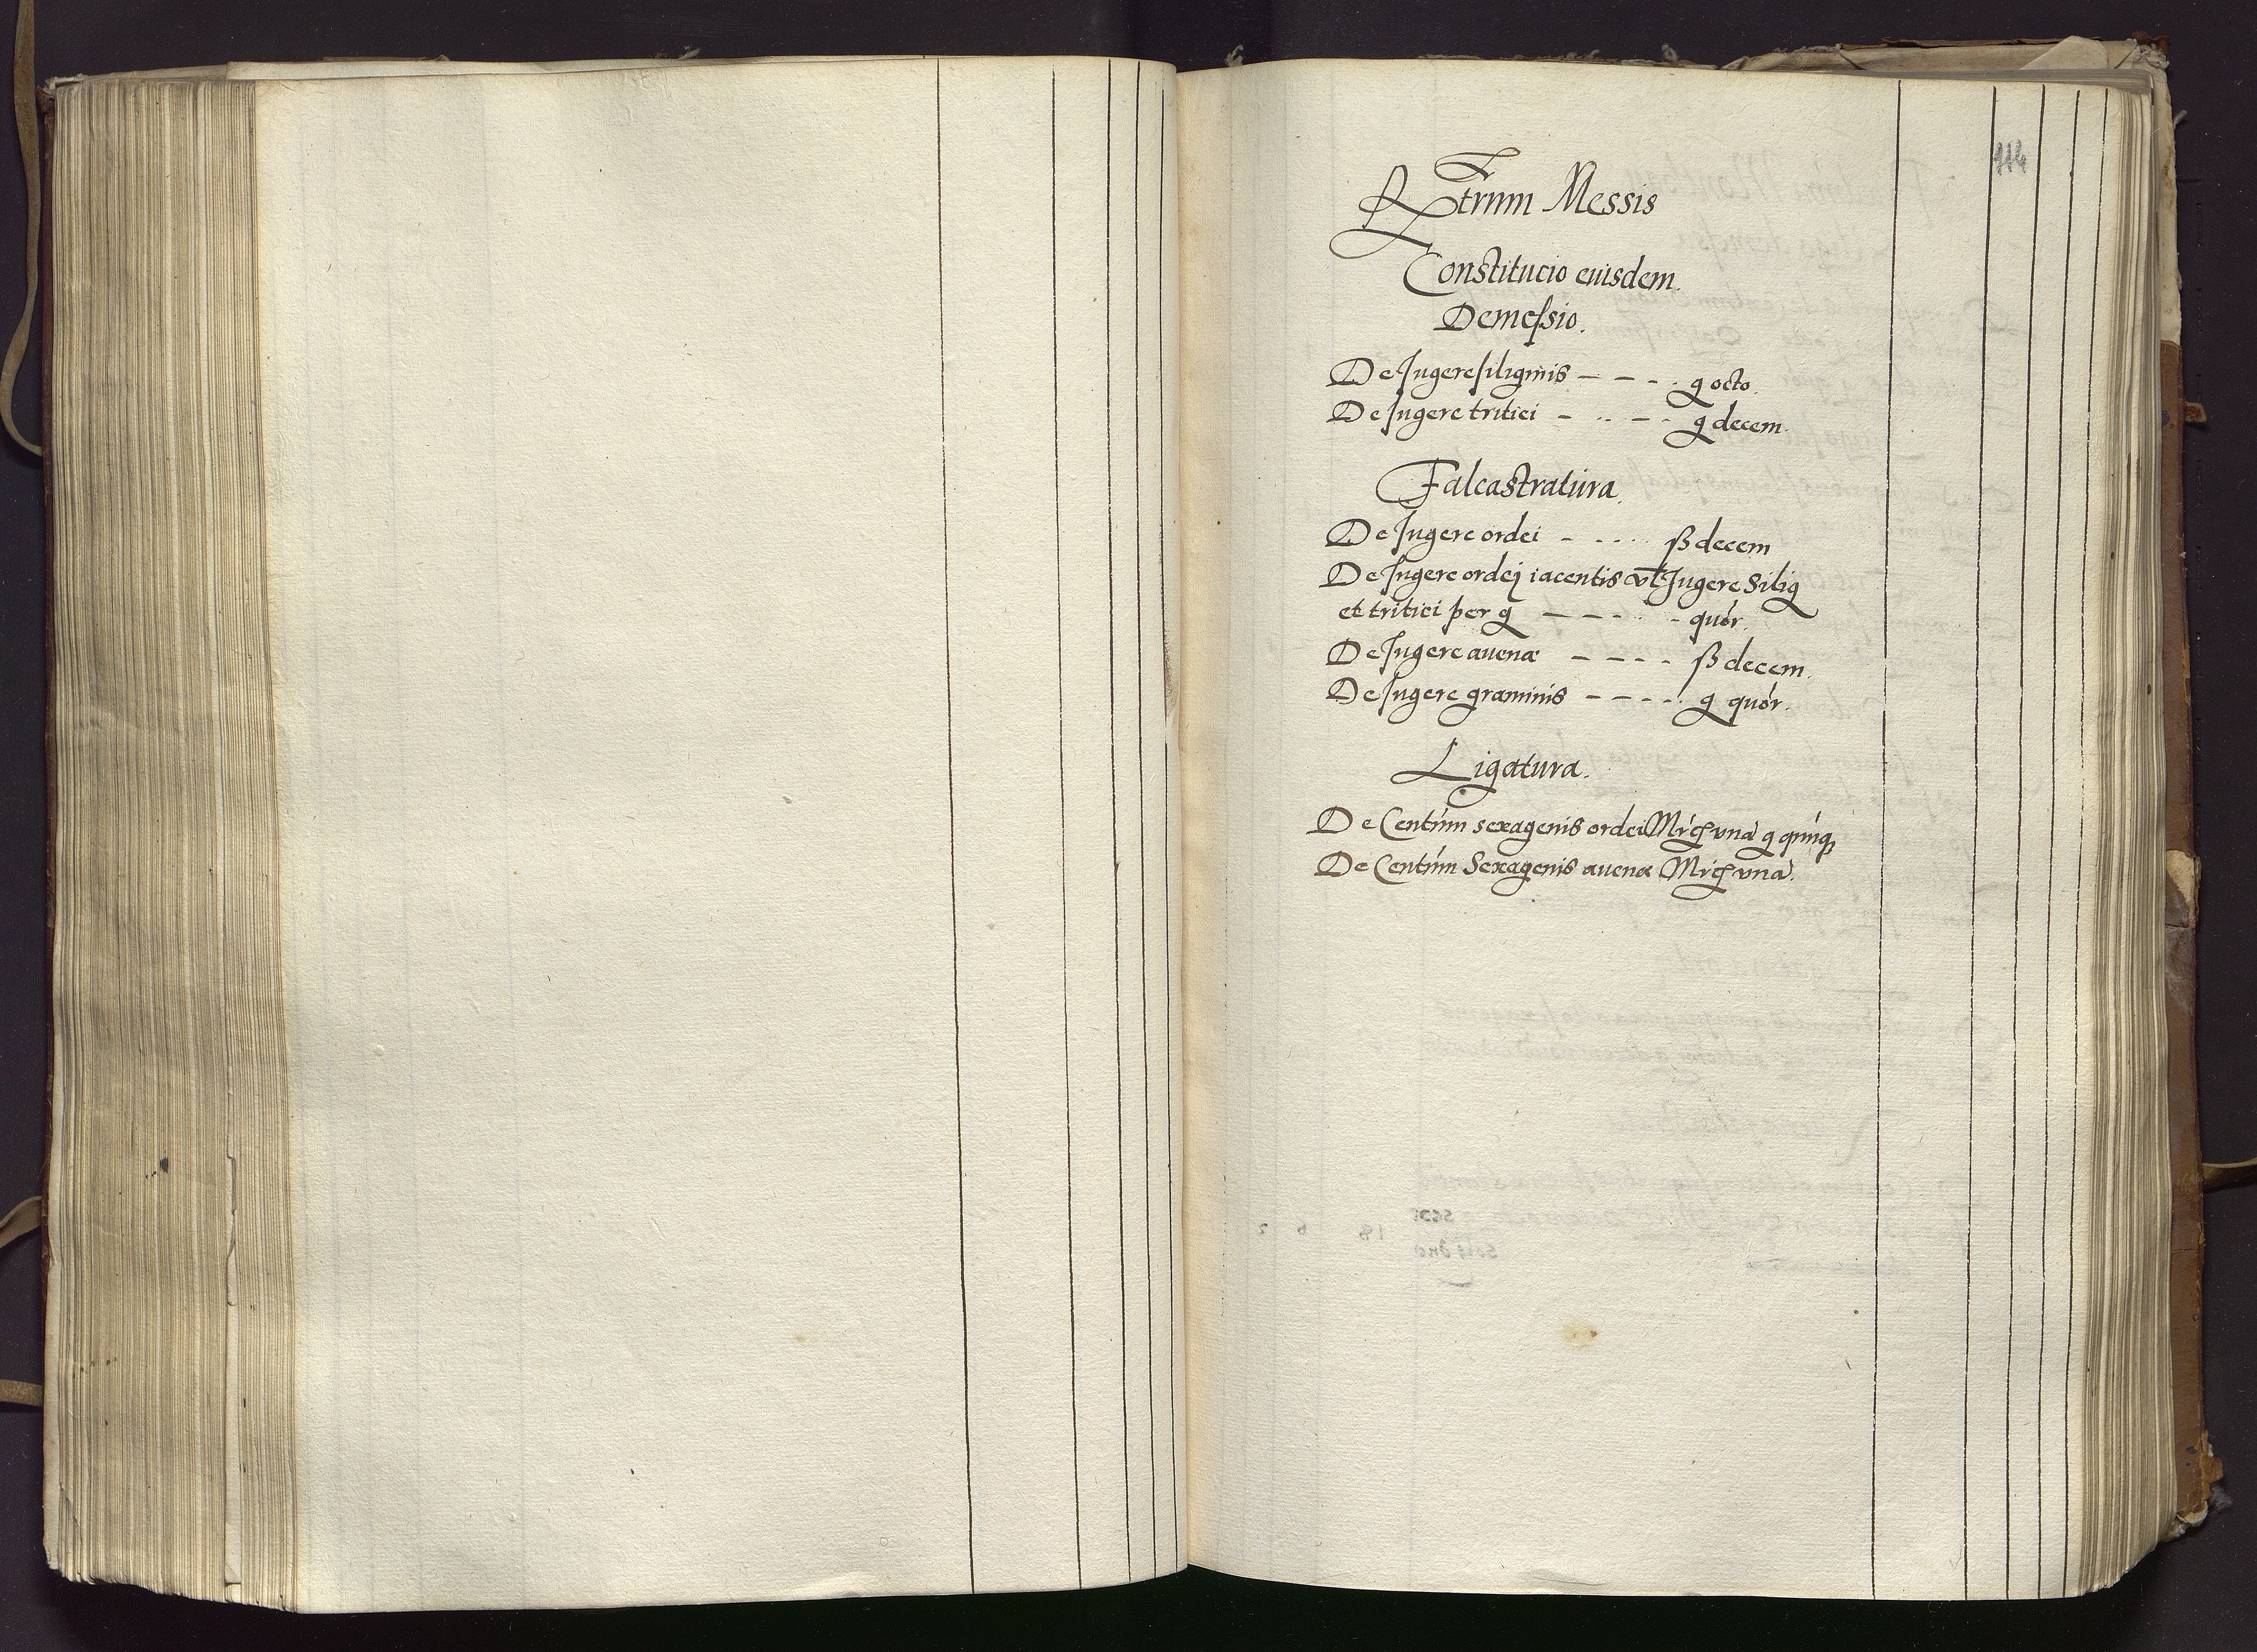 114
Rgestrum Messis
Constitucio euisdem.
Demeſsio.
De Iugere ſiliginis – – – . g octo.
De Iugere tritici – .. – – g decem.
Falcastratura.
De Iugere ordei – . . . . ß decem
De Iugere ordej iacentis vl Iugere Silig
et tritici per g – – – . . – quór.
De Iugere auenæ – – – – ß decem.
De Iugere graminis – – – – . g quór.
Ligatura.
De Centúm sexagenis ordei Mrcſ vna g quinq
De Centúm Sexagenis auenæ Mrcſ vna.